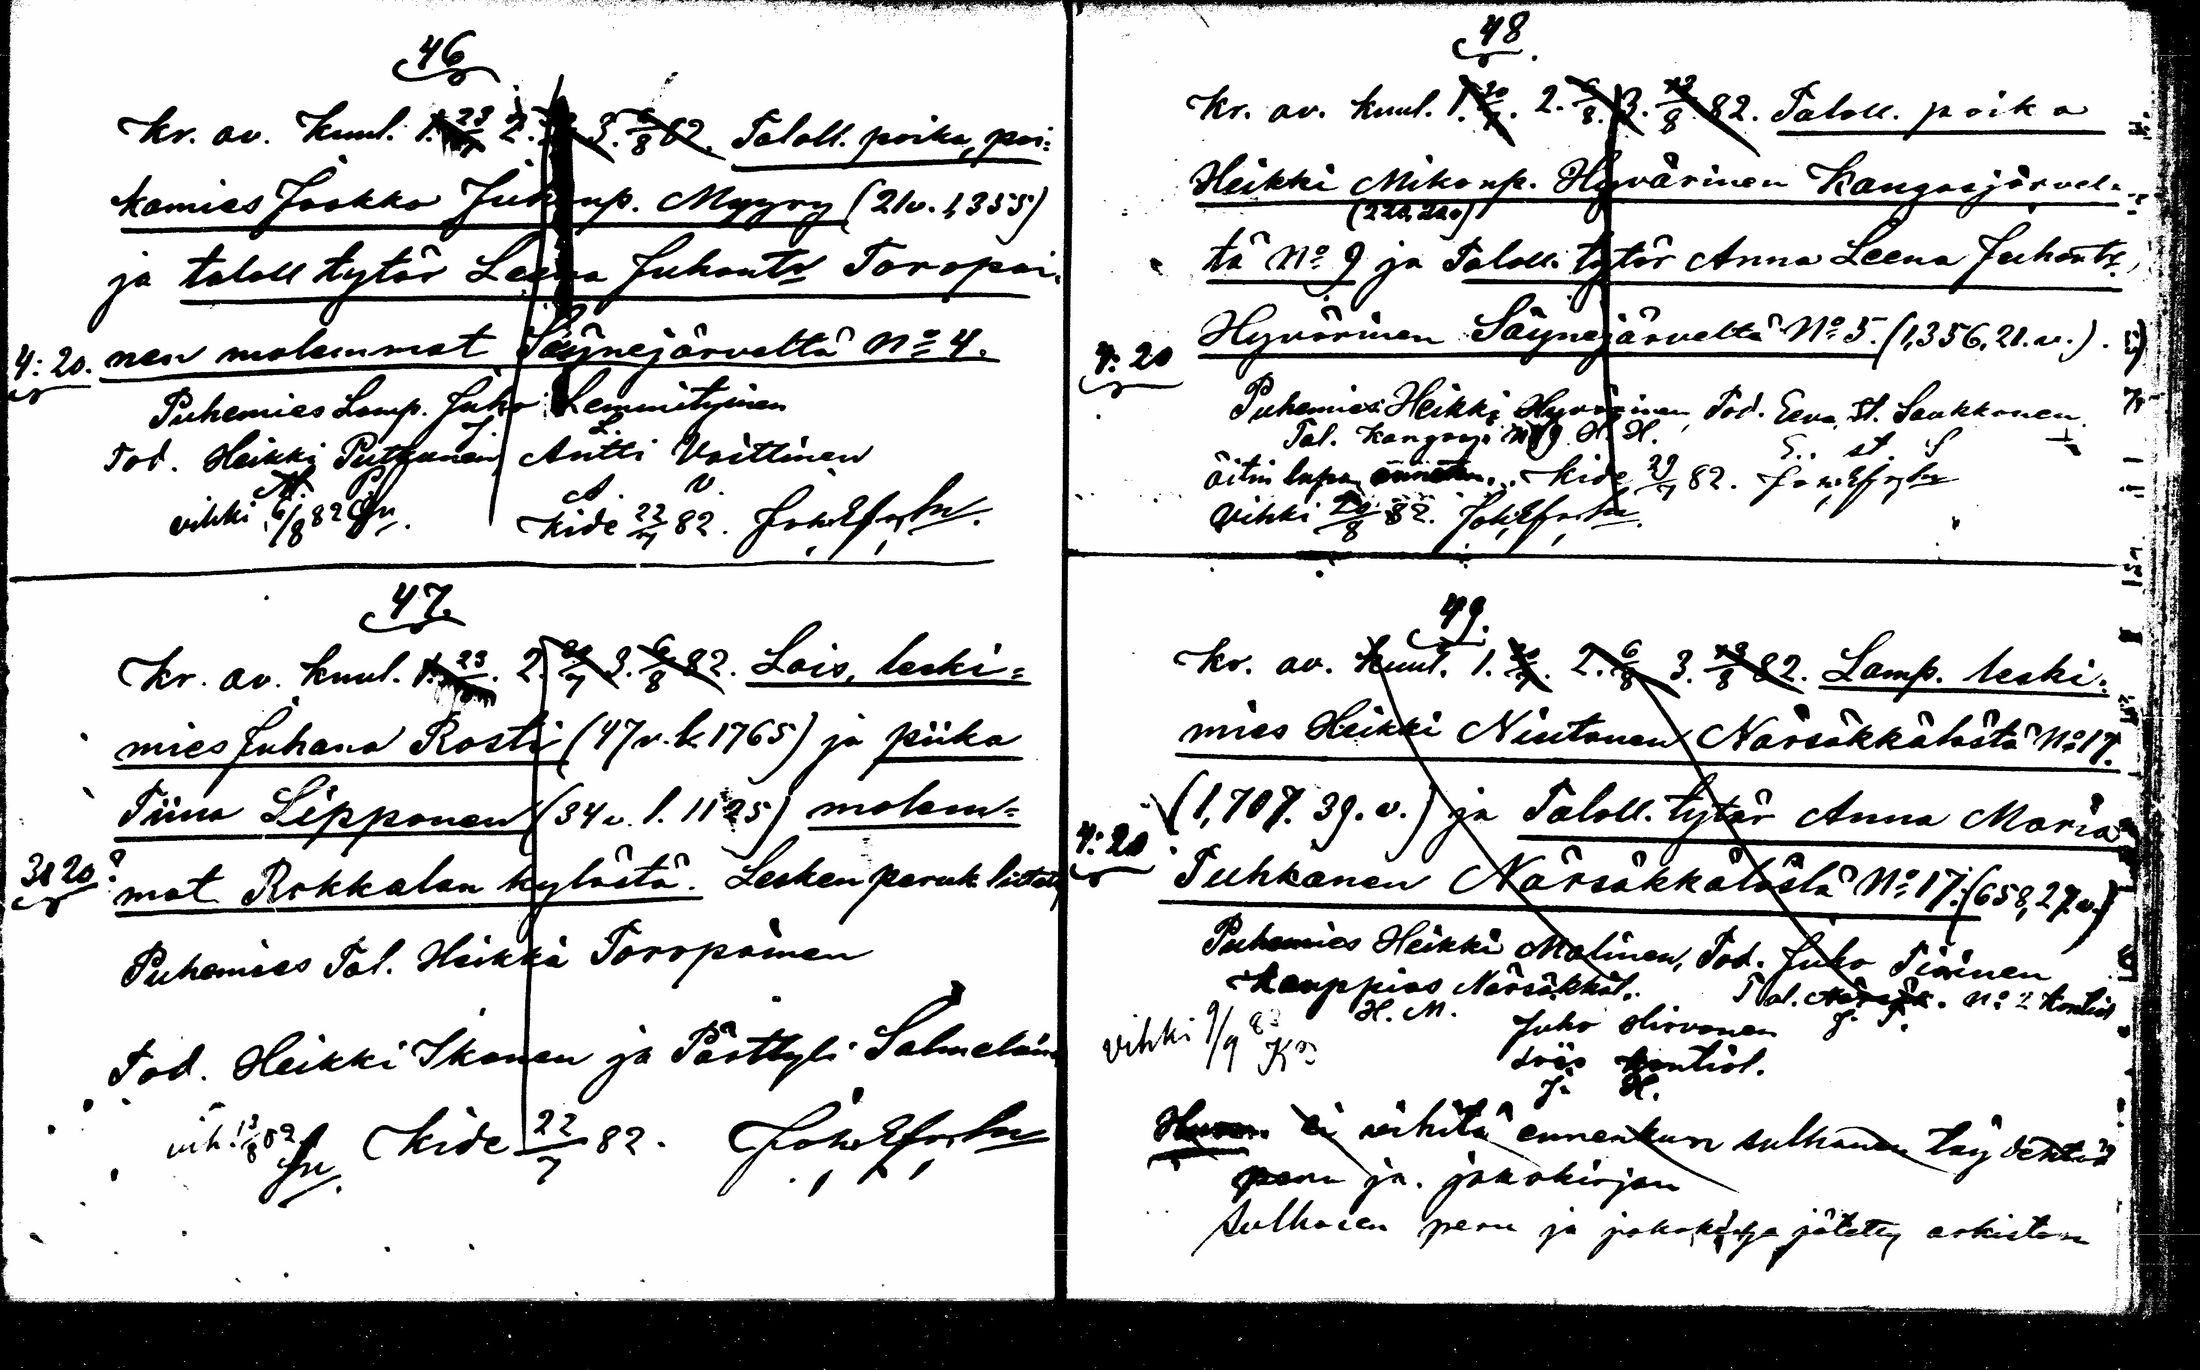 46
Kr. av. Kuul. 1. 23/7 2. 3. 6/8 82. Taloll. poika, poi-
kamies Jaakko Juhanp. Myyry (21 v. 1,355)
ja taloll tytär Leena Juhantr Toropai-
4:20. nen molemmat Säynejärveltä No 4.
Puhemies Lamp. Juho Lemmityinen
J. L.
Tod. Heikki Putkonen, Antti Voittinen
H. P. A. V.
vihki 6/8 82 Kide 22/7 82.
47.
Kr. av. Kuul. 1. 23/7. 2. 30/7 3. 6/8 82. Lois, leski=
mies Juhana Rosti (47 v. l. 1765) ja piika
Tiina Lipponen (34 v. l. 1125) molem=
mat Rokkalan kylästä. Lesken peruk.
Puhemies Tal. Heikki Toropainen
Tod. Heikki Ikonen ja Pärttyli
vih. 13/8 82 Kide 22/7 82.
48.
Kr. av. Kuul. 1. 30/7. 2. 6/8. 3. 13/8 82. Taloll. poika
Heikki Mikonp. Hyvärinen Kangasjärvel-
tä No 9 ja Taloll. tytär Anna Leena Juhantr
Hyvärinen Säynejärveltä No 5. (1,356, 21. v.).
4:20
Puhemies Heikki Hyvärinen, Tod. Eeva St. Saukkonen
Tal. Kangasj. No 9 H. H. E. st. S
äitin lupa Kide 29/7 82.
Vihki 20/8 82.
49.
Kr. av. Kuul. 1. 30/7. 2. 6/8 3. 13/8 82. Lamp. leski-
mies Heikki Niutanen Närsäkkälästä No 17.
(1,707. 39. v.) ja Taloll. tytär Anna Maria
4:20
Tuhkanen Närsäkkälästä No 17. (658, 27. v.)
Puhemies Heikki Malinen, Tod. Juho Tiainen
Kauppias Närsäkkäl. Tal. No 2
H. M. J. T.
vihki 9/9 83 Juho Hirvonen
Lois
J. H.
ei vihitä ennenkun sulhanen
peru ja jakokirjan
Sulhasen peru ja jakokirja jätetty arkistoon